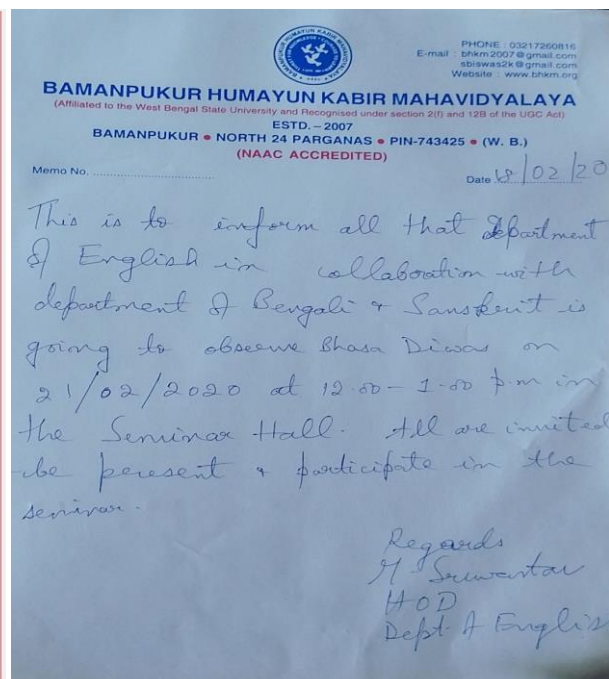 PHONE : 03217260816
E-mail : bhkm2007@gmail.com
sbiswas2k@gmail.com
Website : www.bhkm.org
BAMANPUKUR HUMAYUN KABIR MAHAVIDYALAYA
(Affiliated to the West Bengal State University and Recognised under section 2(f) and 12B of the UGC Act)
ESTD. – 2007
BAMANPUKUR • NORTH 24 PARGANAS • PIN-743425 • (W. B.)
(NAAC ACCREDITED)
Memo No. Date 18/02/20
This is to inform all that department
of English in collaboration with
department of Bengali & Sanskrit is
going to observe Bhasa Diwas on
21/02/2020 at 12.00 – 1.00 p.m in
the Seminar Hall. All are invited
be present & participate in the
seminar.
Regards
M
HOD
Dept. of Englis